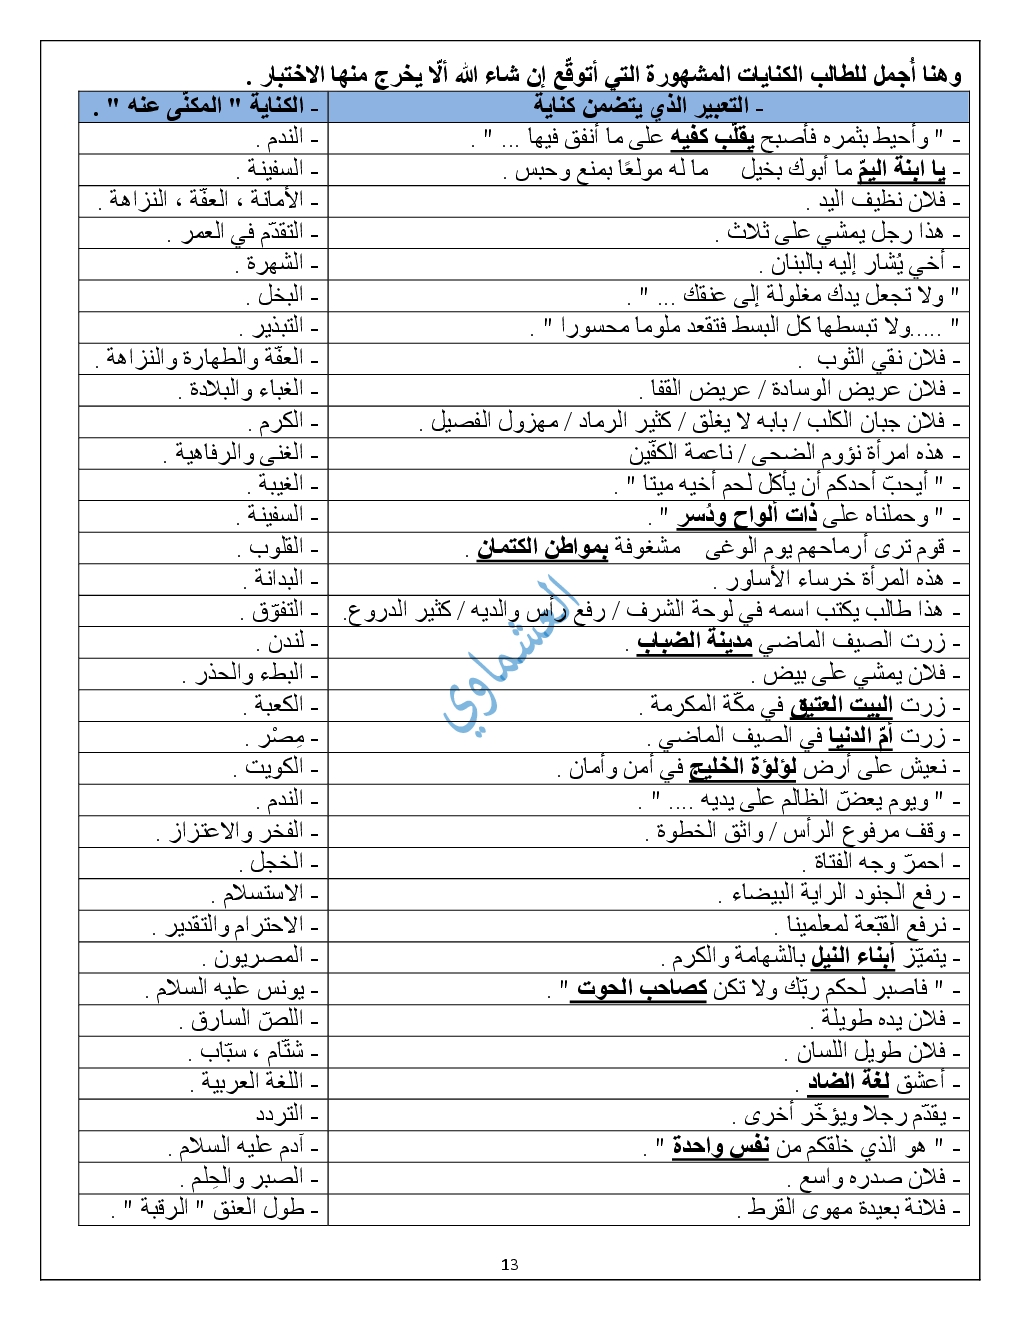 وهنا أُجمل للطالب الكنايات المشهورة التي أتوقّع إن شاء الله ألّا يخرج منها الاختبار .
- التعبير الذي يتضمن كناية - الكناية " المكنّى عنه " .
- " وأحيط بثمره فأصبح يقلّب كفيه على ما أنفق فيها ... " . - الندم .
- يا ابنة اليمّ ما أبوك بخيل ما له مولعًا بمنع وحبس . - السفينة .
- فلان نظيف اليد . - الأمانة ، العفّة ، النزاهة .
- هذا رجل يمشي على ثلاث . - التقدّم في العمر .
- أخي يُشار إليه بالبنان . - الشهرة .
" ولا تجعل يدك مغلولة إلى عنقك ... " . - البخل .
" .....ولا تبسطها كل البسط فتقعد ملوما محسورا " . - التبذير .
- فلان نقي الثوب . - العفّة والطهارة والنزاهة .
- فلان عريض الوسادة / عريض القفا . - الغباء والبلادة .
- فلان جبان الكلب / بابه لا يغلق / كثير الرماد / مهزول الفصيل . - الكرم .
- هذه امرأة نؤوم الضحى / ناعمة الكفّين - الغنى والرفاهية .
- " أيحبّ أحدكم أن يأكل لحم أخيه ميتا " . - الغيبة .
- " وحملناه على ذات ألواح ودُسر " . - السفينة .
- قوم ترى أرماحهم يوم الوغى مشغوفة بمواطن الكتمان . - القلوب .
- هذه المرأة خرساء الأساور . - البدانة .
- هذا طالب يكتب اسمه في لوحة الشرف / رفع رأس والديه / كثير الدروع. - التفوّق .
- زرت الصيف الماضي مدينة الضباب . - لندن .
- فلان يمشي على بيض . - البطء والحذر .
- زرت البيت العتيق في مكّة المكرمة . - الكعبة .
- زرت أمّ الدنيا في الصيف الماضي . - مِصْر .
- نعيش على أرض لؤلؤة الخليج في أمن وأمان . - الكويت .
- " ويوم يعضّ الظالم على يديه .... " . - الندم .
- وقف مرفوع الرأس / واثق الخطوة . - الفخر والاعتزاز .
- احمرّ وجه الفتاة . - الخجل .
- رفع الجنود الراية البيضاء . - الاستسلام .
- نرفع القبّعة لمعلمينا . - الاحترام والتقدير .
- يتميّز أبناء النيل بالشهامة والكرم . - المصريون .
- " فاصبر لحكم ربّك ولا تكن كصاحب الحوت " . - يونس عليه السلام .
- فلان يده طويلة . - اللصّ السارق .
- فلان طويل اللسان . - شتّام ، سبّاب .
- أعشق لغة الضاد . - اللغة العربية .
- يقدّم رجلا ويؤخّر أخرى . - التردد
- " هو الذي خلقكم من نفس واحدة " . - آدم عليه السلام .
- فلان صدره واسع . - الصبر والحِلم .
- فلانة بعيدة مهوى القرط . - طول العنق " الرقبة " .
العشماوي
13